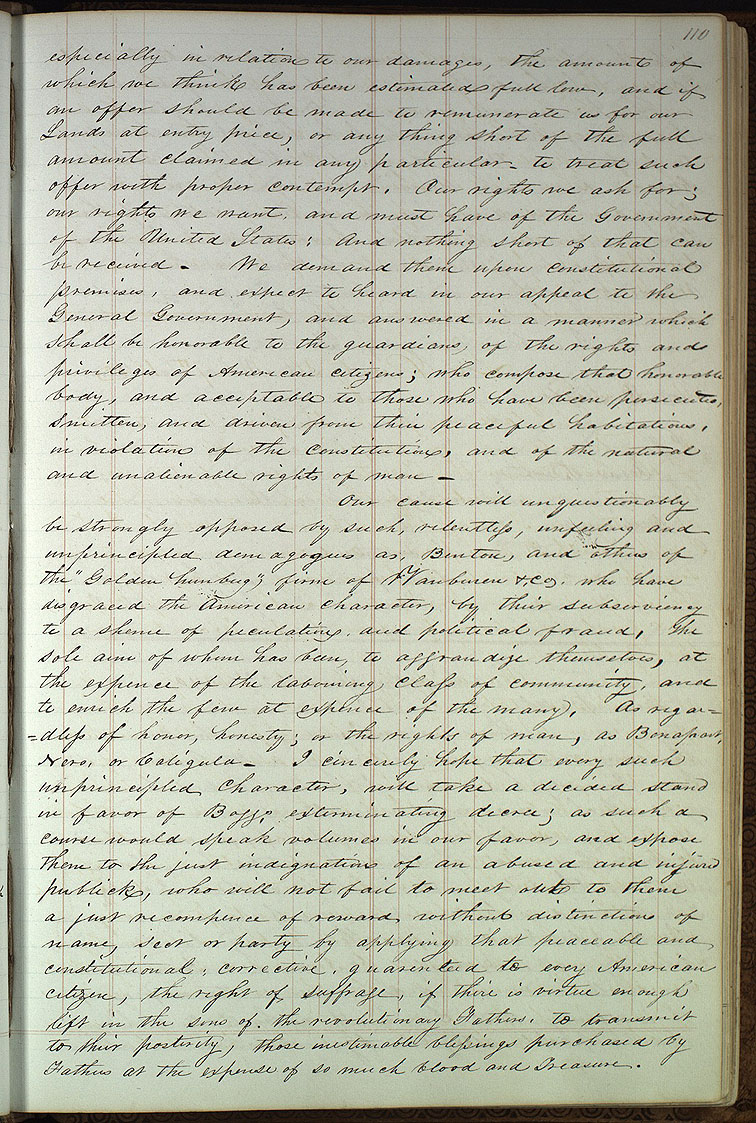 110
especially in relation to our damages, the amount of
which we think has been estimated full low, and if
an offer should be made to remunerate us for our
Lands at entry price, or any thing short of the full
amount claimed in any particular - to treat such
offer with proper contempt. Our rights we ask for;
our rights we want, and must have of the Government
of the United States; And nothing short of that can
be received - We demand them upon constitutional
premises, and expect to heard in our appeal to the
General Government, and answered in a manner which
shall be honorable to the guardians, of the rights and
privileges of American citizens; who compose that honorable
body, and acceptable to those who have been persecuted,
Smitten, and driven from their peaceful habitations,
in violation of the constitution, and of the natural
and unalienable rights of man -
Our cause will unquestionably
be strongly opposed by such, relentless, unfeeling and
unprincipled demagogues as, Benton, and others of
the "Golden humbug", firm of Vanburen & co. who have
disgraced the American character, by their subserviency
to a sheme of peculation, and political fraud, The
sole aim of whom has been, to aggrandize themselves, at
the expence of the labouring class of community, and
to enrich the few at expence of the many, As regar=
=dless of honor, honesty; or the rights of man, as Bonapart,
Nero, or Caligula - I cincerely hope that every such
unprincipled character, will take a decided stand
in favor of Boggs exterminating decree; as such a
course would speak volumes in our favor, and expose
them to the just indignation of an abused and injured
publick, who will not fail to meet out to them
a just recompence of reward without distinction of
name, sect or party by applying that peaceable and
constitutional, corrective, guarenteed to every American
citizen, the right of suffrage, if there is virtue enough
left in the sons of the revolutionary Fathers, to transmit
to their posterity, those inestimable blessings purchased by
Fathers at the expense of so much blood and Treasure.